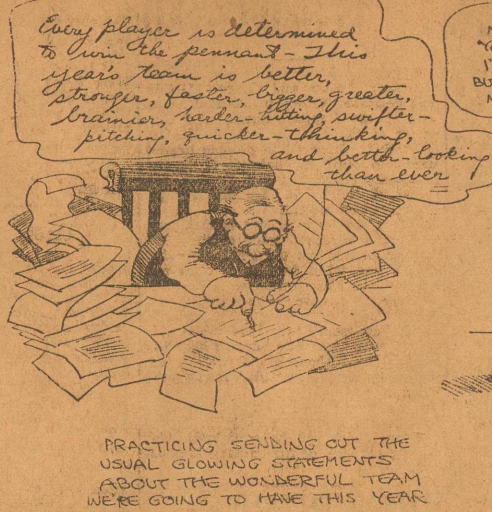 Every player is determined
to win the pennant - This
year's team is better,
stronger, faster, bigger, greater,
brainier, harder-hitting, swifter-
pitching, quicker-thinking,
and better-looking
than ever
BU
PRACTICING SENDING OUT THE
USUAL GLOWING STATEMENTS
ABOUT THE WONDERFUL TEAM
WE'RE GOING TO HAVE THIS YEAR